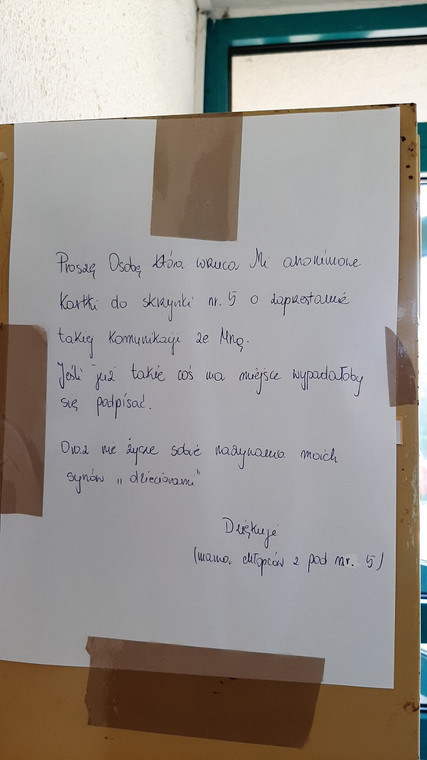 Proszę Osobę która wrzuca Mi anonimowe
kartki do skrzynki nr. 5 o zaprzestanie
takiej komunikacji ze Mną.
Jeśli już takie coś ma miejsce wypadałoby
się podpisać.
Oraz nie życzę sobie nazywania moich
synów „dzieciorami"
Dziękuję
(mama chłopców z pod nr. 5)